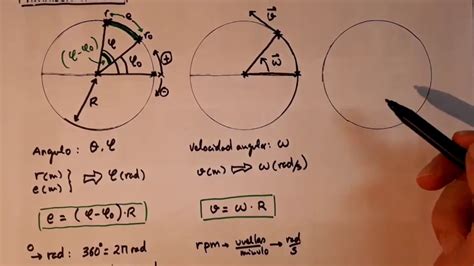 r e r₀
(φ-φ₀) φ φ₀ ⊕
⊖
R
v⃗
ω⃗
Angulo : θ, φ
r(m)
e(m) } ⇨ φ(rad)
e = (φ-φ₀)·R
° → rad: 360° = 2π rad
Velocidad angular: ω
v(m) ⇨ ω(rad/s)
v = ω·R
rpm → vueltas/minuto → rad/s